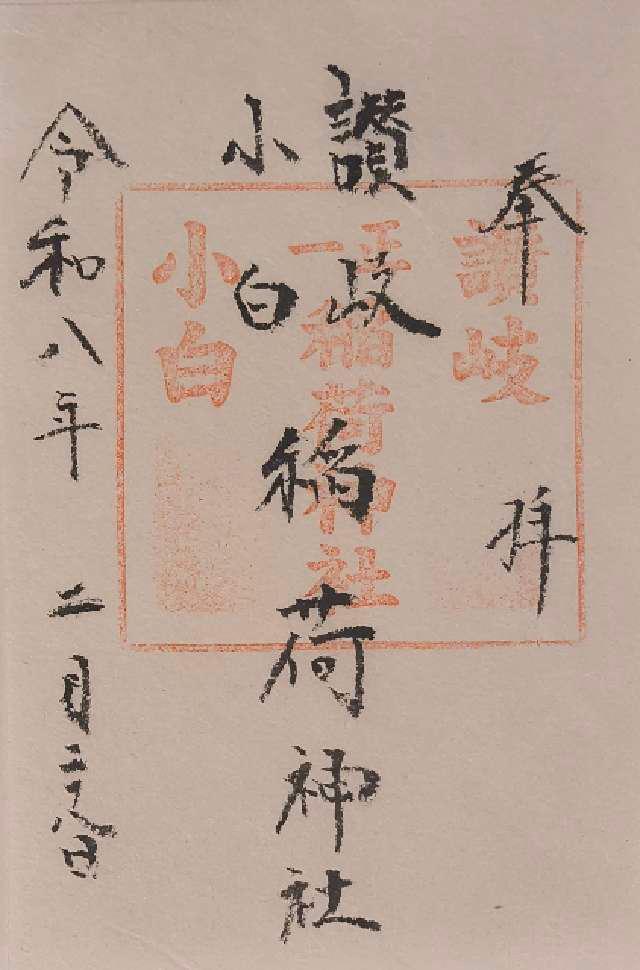 奉拝
讃岐稲荷神社
小白
令和八年 二月二十八日
讃岐
稲荷神社
小白